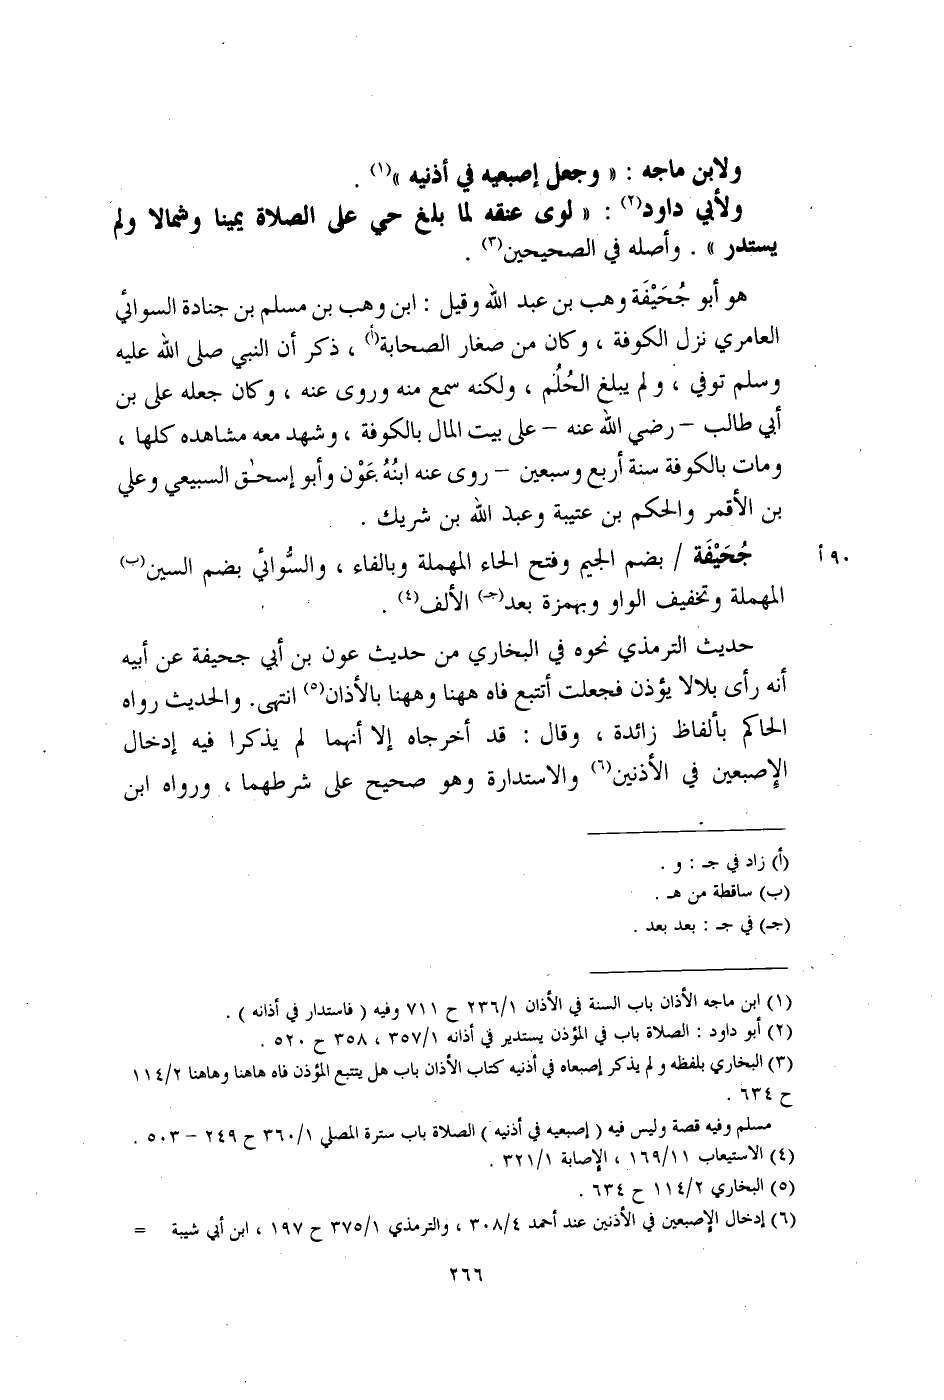 ولابن ماجه : « وجعل إصبعيه في أذنيه »(١) .
ولأبي داود(٢) : « لوى عنقه لما بلغ حي على الصلاة يمينا وشمالا ولم
يستدر » . وأصله في الصحيحين(٣) .
هو أبو جُحَيْفَة وهب بن عبد الله وقيل : ابن وهب بن مسلم بن جنادة السوائي
العامري نزل الكوفة ، وكان من صغار الصحابة(أ) ، ذكر أن النبي صلى الله عليه
وسلم توفي ، ولم يبلغ الحُلُم ، ولكنه سمع منه وروى عنه ، وكان جعله على بن
أبي طالب – رضي الله عنه – على بيت المال بالكوفة ، وشهد معه مشاهده كلها ،
ومات بالكوفة سنة أربع وسبعين – روى عنه ابنُهُ عَوْن وأبو إسحٰق السبيعي وعلي
بن الأقمر والحكم بن عتيبة وعبد الله بن شريك .
٩٠ أ جُحَيْفَة / بضم الجيم وفتح الحاء المهملة وبالفاء ، والسُّوائي بضم السين(ب)
المهملة وتخفيف الواو وبهمزة بعد(جـ) الألف(٤) .
حديث الترمذي نحوه في البخاري من حديث عون بن أبي جحيفة عن أبيه
أنه رأى بلالا يؤذن فجعلت أتتبع فاه ههنا وههنا بالأذان(٥) انتهى. والحديث رواه
الحاكم بألفاظ زائدة ، وقال : قد أخرجاه إلا أنهما لم يذكرا فيه إدخال
الإصبعين في الأذنين(٦) والاستدارة وهو صحيح على شرطهما ، ورواه ابن
(أ) زاد في جـ : و .
(ب) ساقطة من هـ .
(جـ) في جـ : بعد بعد .
(١) ابن ماجه الأذان باب السنة في الأذان ٢٣٦/١ ح ٧١١ وفيه ( فاستدار في أذانه ) .
(٢) أبو داود : الصلاة باب في المؤذن يستدير في أذانه ٣٥٧/١ ، ٣٥٨ ح ٥٢٠ .
(٣) البخاري بلفظه ولم يذكر إصبعاه في أذنيه كتاب الأذان باب هل يتتبع المؤذن فاه هاهنا وهاهنا ١١٤/٢
ح ٦٣٤ .
مسلم وفيه قصة وليس فيه ( إصبعيه في أذنيه ) الصلاة باب سترة المصلي ٣٦٠/١ ح ٢٤٩ – ٥٠٣ .
(٤) الاستيعاب ١٦٩/١١ ، الإصابة ٣٢١/١ .
(٥) البخاري ١١٤/٢ ح ٦٣٤ .
(٦) إدخال الإصبعين في الأذنين عند أحمد ٣٠٨/٤ ، والترمذي ٣٧٥/١ ح ١٩٧ ، ابن أبي شيبة =
٢٦٦